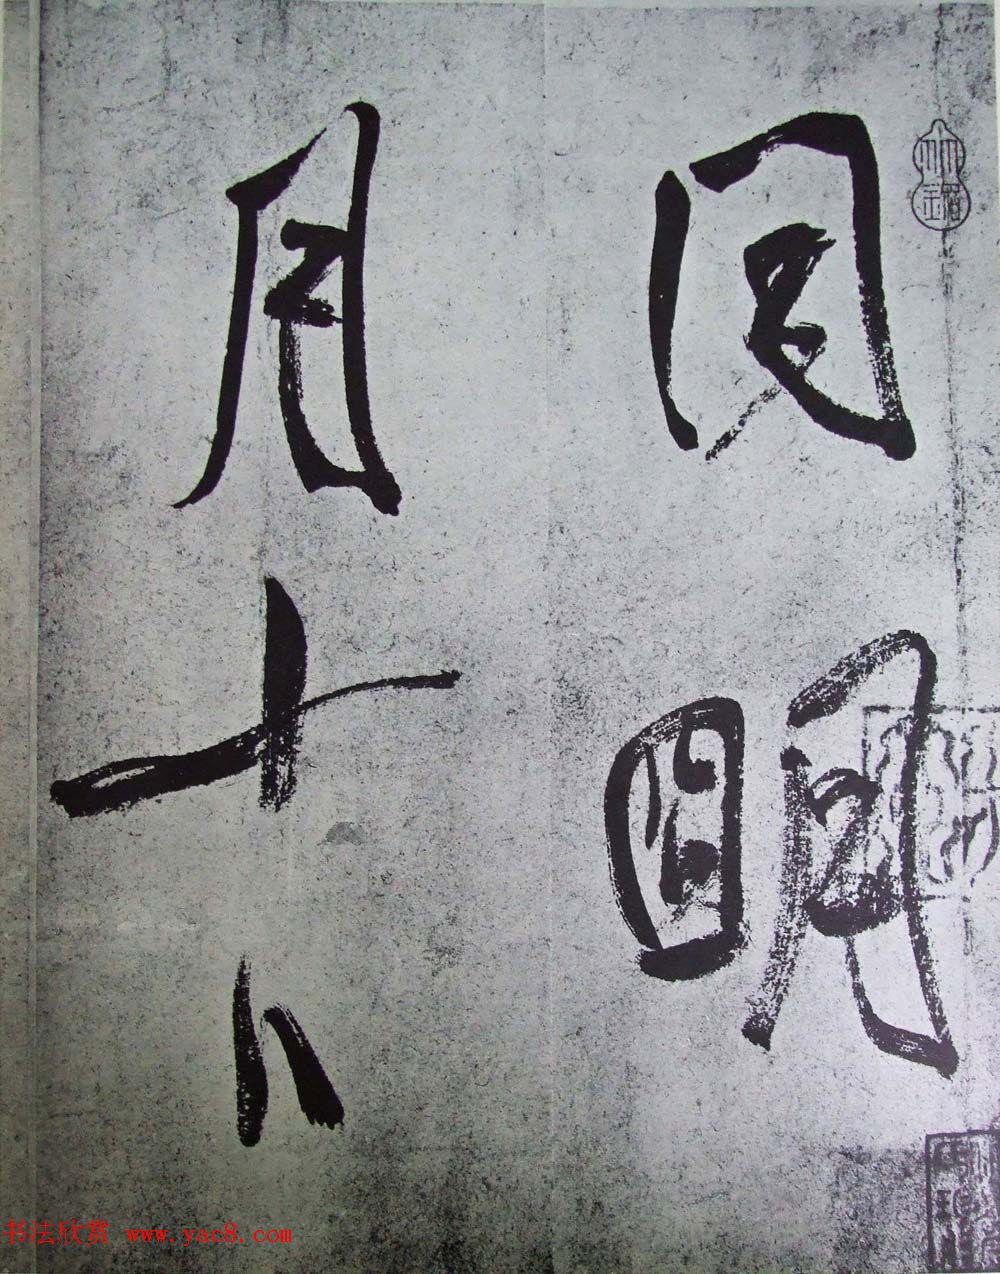 同明
月十八
书法欣赏 www.yac8.com